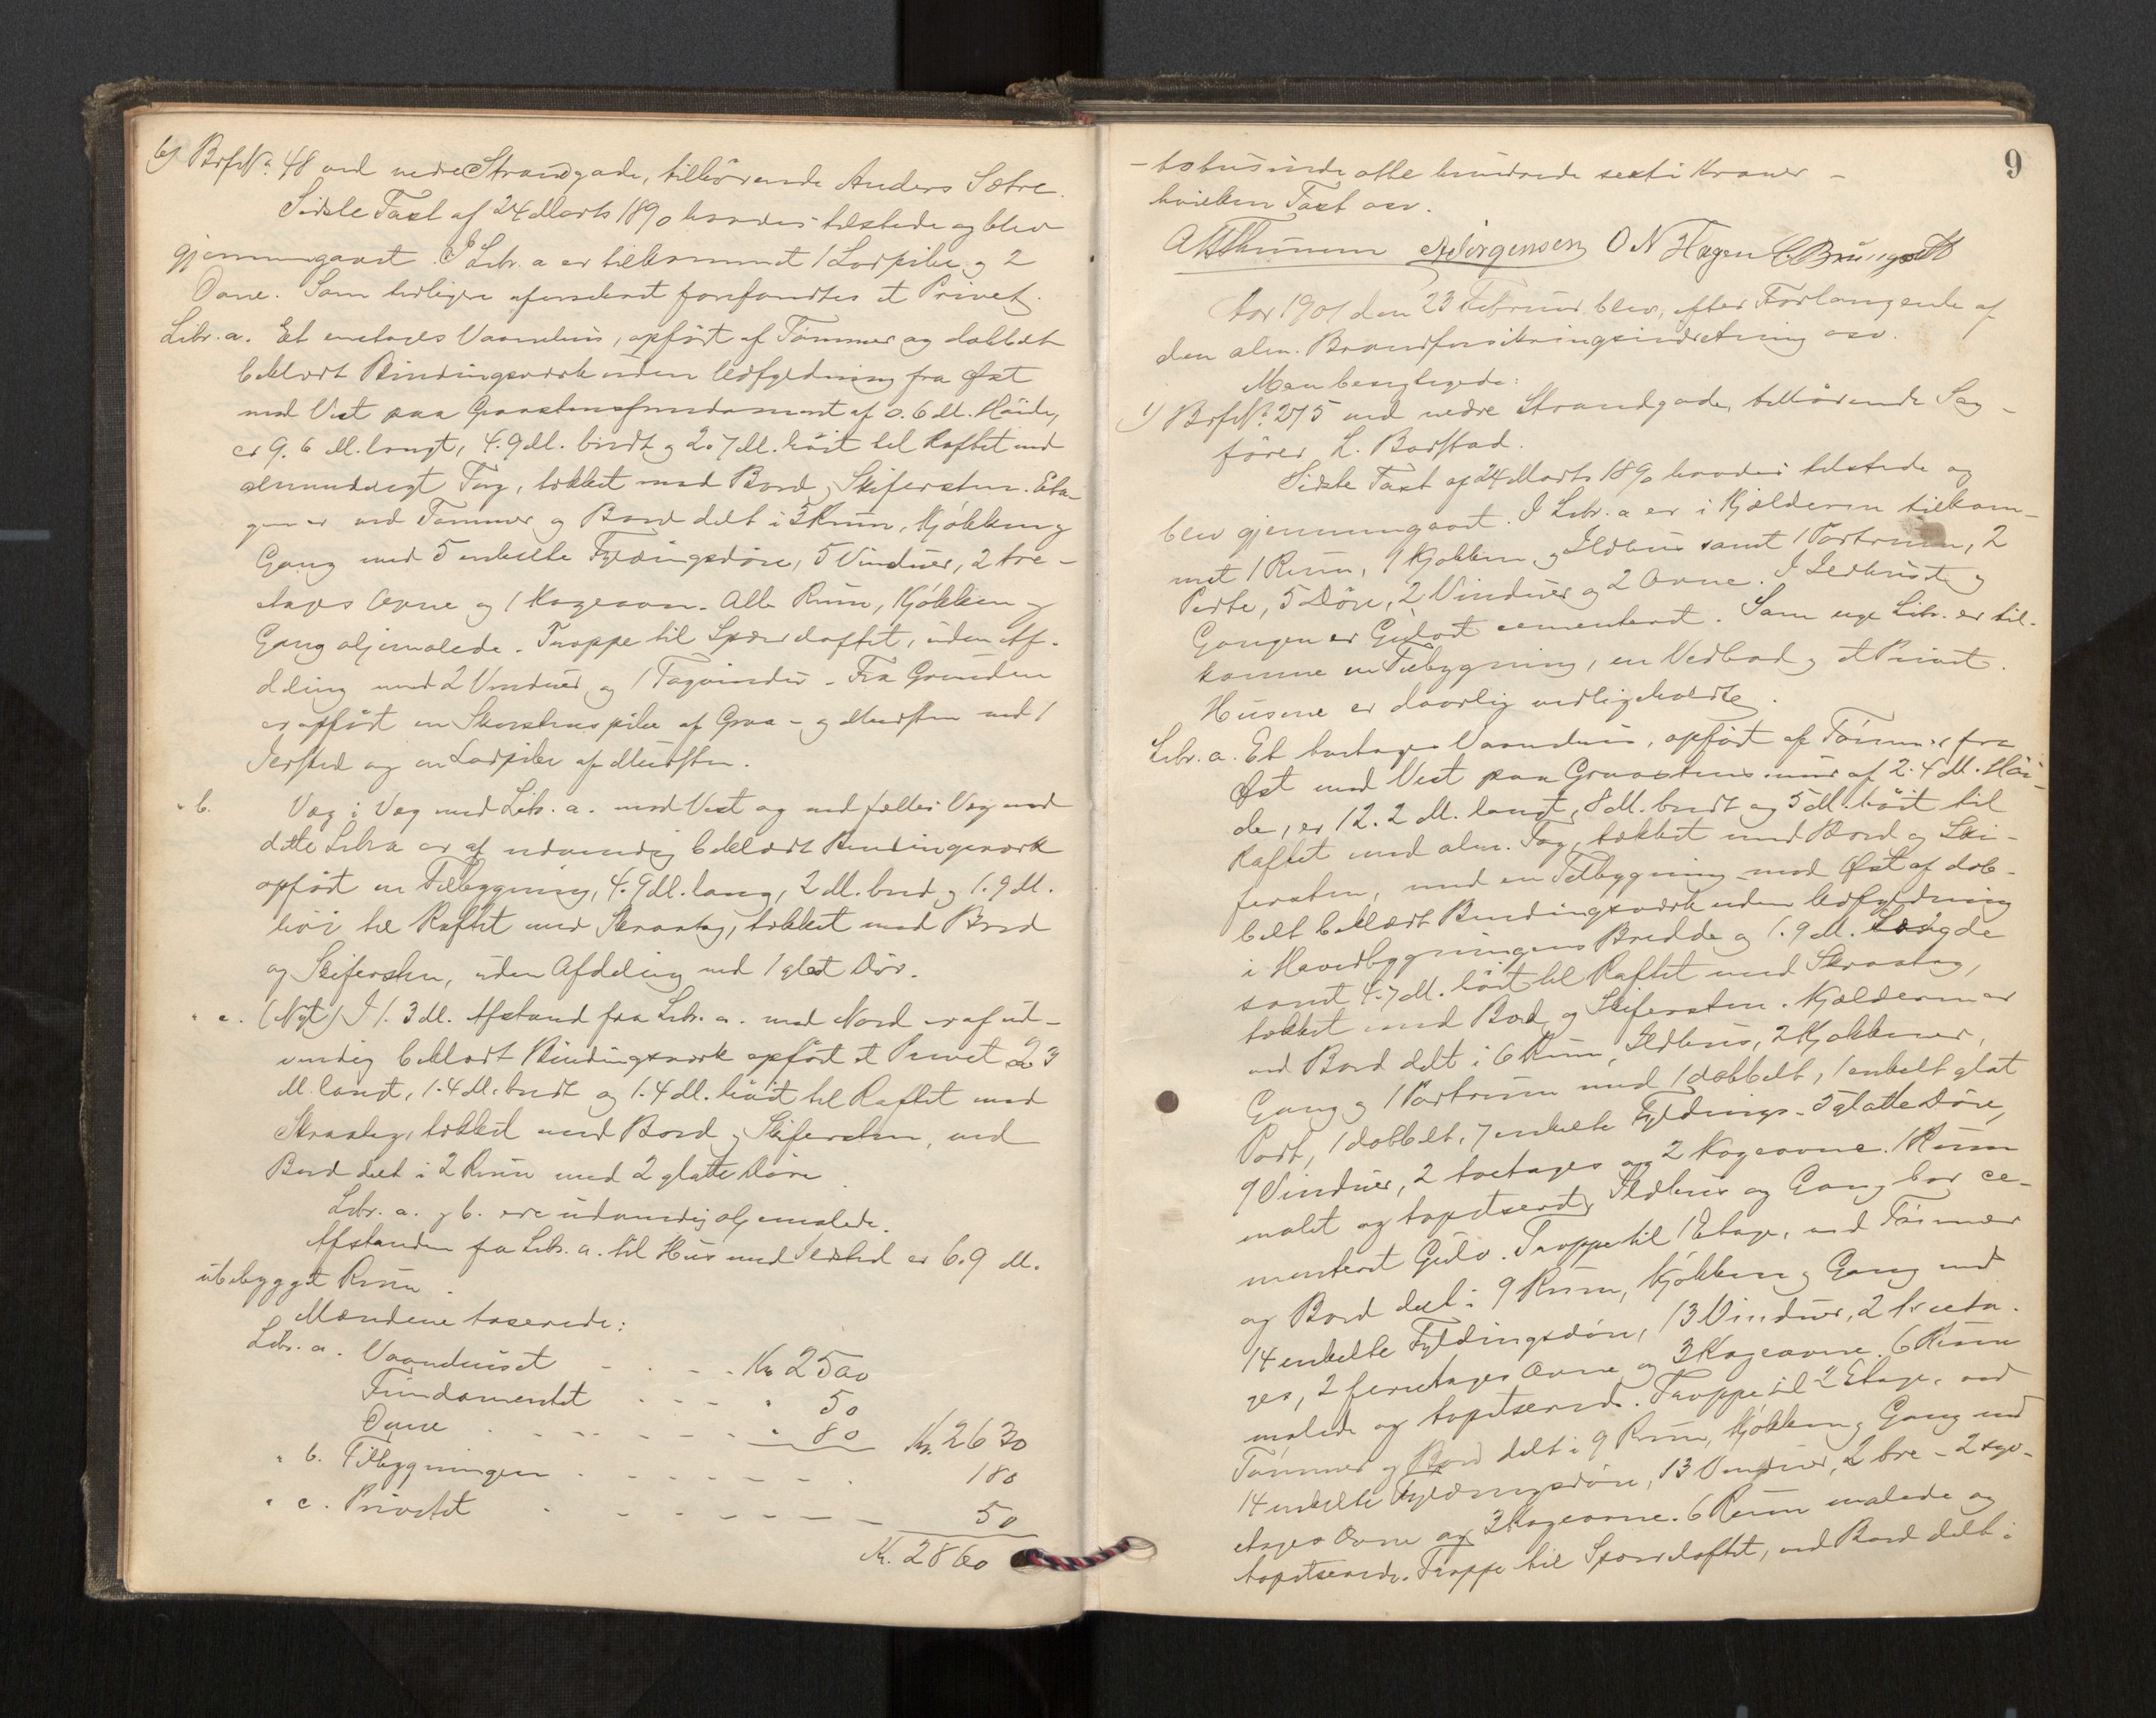 6) Brf. № 48 ved nedre Strandgade, tilhörende Anders Sætre.
Sidste Taxt af 24 Marts 1890 havdes tilstede og blev
gjennemgaaet. I Litr. a er tilkommet 1 Lodpibe og 2
Ovne. Som tidligere uforsikret forefandtes et Privet.
Litr. a. Et enetages Vaanehus, opfört af Tømmer og dobbelt
beklædt Bindingsværk uden Udfyldning fra Øst
mod Vest paa Graastensfundament af 0.6 M. Höide,
er 9.6 M. langt, 4.9 M. bredt og 2.7 M. höit til Raftet med
almindeligt Tag, tækket med Bord og Skifersten. Eta-
gen er ved Tømmer og Bord delt i 3 Rum, Kjøkken og
Gang med 5 enkelte Fyldingsdöre, 5 Vinduer, 2 tre-
etages Ovne og 1 Kogeovn. Alle Rum, Kjøkken og
Gang oljemalede. Trappe til Spærreloftet, uden Af-
deling med 2 Vinduer og 1 Tagvindu. Fra Grunden
er opfört en Skorstenspibe af Graa- og Mursten med 1
Ildsted og en Lodpibe af Mursten.
" b. Væg i Væg med Litr. a. mod Vest og med fælles Væg med
dette Litra er af udvendig beklædt Bindingsværk
opfört en Tilbygning, 4.9 M. lang, 2 M. bred og 1.9 M.
höi til Raftet med Skraatag, tækket med Bord
og Skifersten, uden Afdeling med 1 glat Dör.
" c. (Nyt) I 1.3 M. Afstand fra Litr. a. mod Nord er af ud-
vendig beklædt Bindingsværk opfört et Privet 2.3
M. langt, 1.4 M. bredt og 1.4 M. höit til Raftet med
Skraatag, tækket med Bord og Skifersten, ved
Bord delt i 2 Rum med 2 glatte Döre.
Litr. a. og b. ere udvendig oljemalede.
Afstanden fra Litr. a. til Hus med Ildsted er 6.9 M.
ubebygget Rum.
Mændene taxerede:
Litr. a. Vaanehuset - - - Kr. 2500
Fundamentet - - - " 50
Ovne - - - - - " 80 Kr. 2630
" b. Tilbygningen - - - - - 180
" c. Privetet - - - - - 50
Kr. 2860
9
- totusinde otte hundrede sexti Kroner -
hvilken Taxt osv.
A Jörgensen O N Hagen C Brungodt
Aar 1901 den 23 Februar blev, efter Forlangende af
den alm. Brandforsikringsindretning osv.
Man besigtigede:
1) Brf. № 275 ved nedre Strandgade, tilhörende Sag-
förer L. Barstad.
Sidste Taxt af 24 Marts 1890 havdes tilstede og
blev gjennemgaaet. I Litr. a er i Kjælderen tilkom-
met 1 Rum, 1 Kjøkken og Ildhus samt 1 Portrum, 2
Porte, 5 Döre, 2 Vinduer og 2 Ovne. I Ildhuset og
Gangen er Gulvet cementeret. Som nye Litr. er til-
komne en Tilbygning, en Vedbod og et Privet.
Husene er daarlig vedligeholdte.
Litr. a. Et toetages Vaanehus, opfört af Tømmer fra
Øst mod Vest paa Graastensmur af 2.4 M. Höi-
de, er 12.2 M. langt, 8 M. bredt og 5 M. höit til
Raftet med alm. Tag, tækket med Bord og Ski-
fersten, med en Tilbygning mod Øst af dob-
belt beklædt Bindingsværk uden Udfyldning
i Hovedbygningens Bredde og 1.9 M. Længde
samt 4.7 M. höit til Raftet med Skraatag,
tækket med Bord og Skifersten. Kjælderen er
ved Bord delt i 6 Rum, Ildhus, 2 Kjøkkener,
Gang og 1 Portrum med 1 dobbelt, 1 enkelt glat
Port, 1 dobbelt, 7 enkelte Fyldings- 5 glatte Döre,
9 Vinduer, 2 toetages og 2 Kogeovne. 1 Rum
malet og tapetseret, Ildhus og Gang har ce-
menteret Gulv. Trappe til 1 Etage, ved Tømmer
og Bord delt i 9 Rum, Kjøkken og Gang med
14 enkelte Fyldingsdöre, 13 Vinduer, 2 treeta-
ges, 2 fireetages Ovne og 3 Kogeovne. 6 Rum
malede og tapetserede. Trappe til 2 Etage, ved
Tømmer og Bord delt i 9 Rum, Kjøkken og Gang med
14 enkelte Fyldingsdöre, 13 Vinduer, 2 tre- 2
etages Ovne og 3 Kogeovne. 6 Rum malede og
tapetserede. Trappe til Spærreloftet, ved Bord delt i